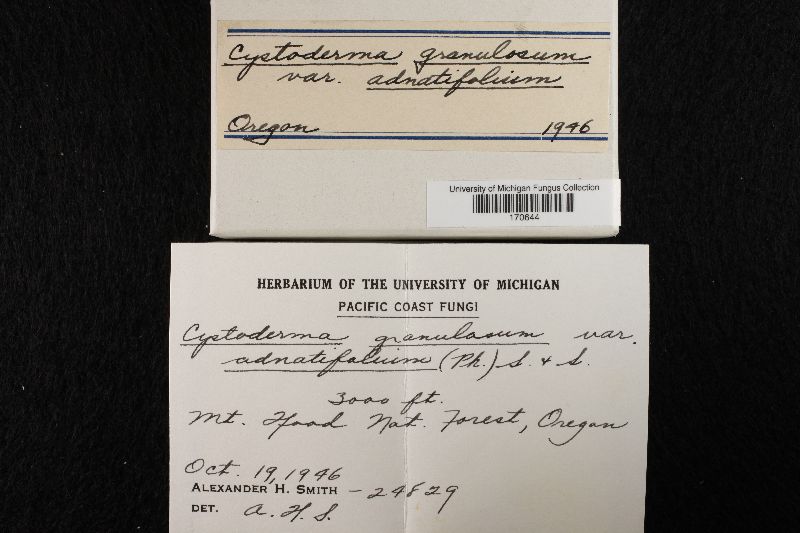 Cystoderma granulosum
var. adnatifolium
Oregon 1946
University of Michigan Fungus Collection
170644
HERBARIUM OF THE UNIVERSITY OF MICHIGAN
PACIFIC COAST FUNGI
Cystoderma granulosum var.
adnatifolium (Pk.) S. & S.
3000 ft.
Mt. Hood Nat. Forest, Oregon
Oct. 19, 1946
ALEXANDER H. SMITH - 24829
DET. A. H. S.